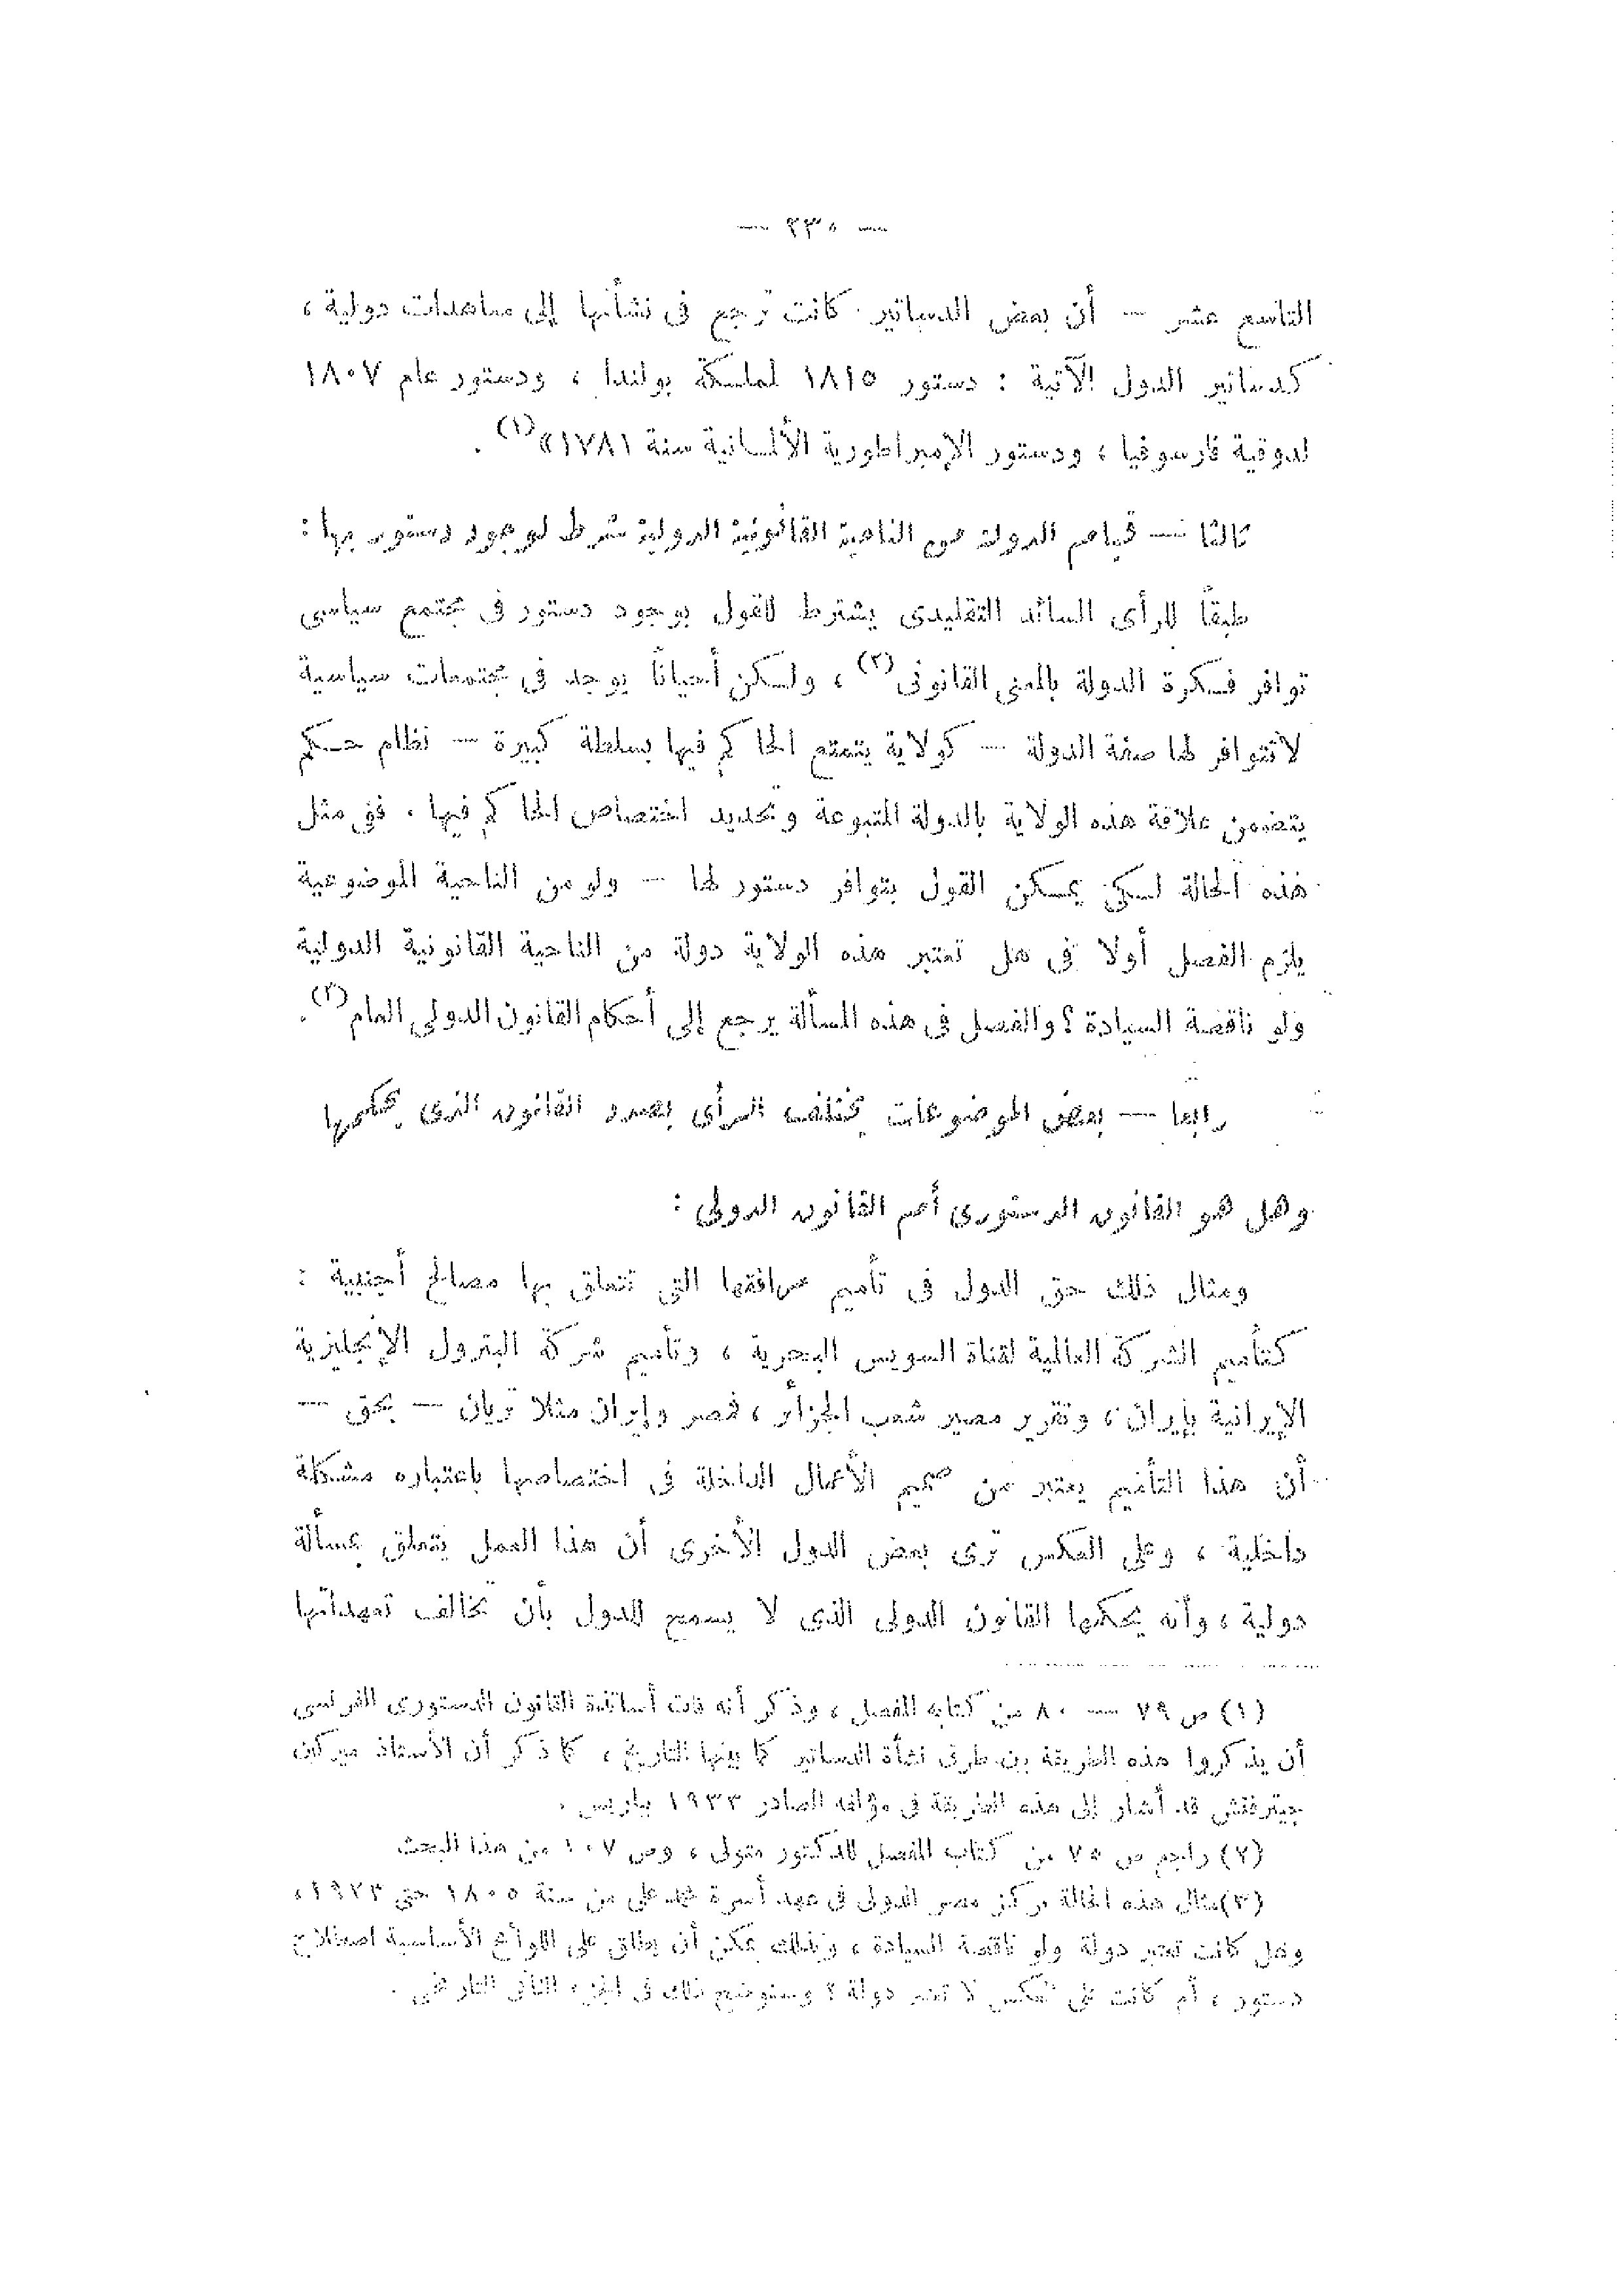 — ٢٣٠ —
التاسع عشر — أن بعض الدساتير كانت ترجع فى نشأتها إلى معاهدات دولية ،
كدساتير الدول الآتية : دستور ١٨١٥ لمملكة بولندا ، ودستور عام ١٨٠٧
لدوقية فارسوفيا ، ودستور الإمبراطورية الألمانية سنة ١٧٨١» (١) .
ثالثا — قيام الدولة من الناحية القانونية الدولية شرط لوجود دستور بها :
طبقاً للرأى السائد التقليدى يشترط للقول بوجود دستور فى مجتمع سياسى
توافر فكرة الدولة بالمعنى القانونى (٢) ، ولكن أحياناً يوجد فى مجتمعات سياسية
لا تتوافر لها صفة الدولة — كولاية يتمتع الحاكم فيها بسلطة كبيرة — نظام حكم
يتضمن علاقة هذه الولاية بالدولة المتبوعة وتحديد اختصاص الحاكم فيها . ففى مثل
هذه الحالة لكى يمكن القول بتوافر دستور لها — ولو من الناحية الموضوعية
يلزم الفصل أولا فى هل تعتبر هذه الولاية دولة من الناحية القانونية الدولية
ولو ناقصة السيادة ؟ والفصل فى هذه المسألة يرجع إلى أحكام القانون الدولى العام (٣) .
رابعا — بعض الموضوعات يختلف الرأى بصدد القانون الذى يحكمها
وهل هو القانون الدستورى أم القانون الدولى :
ومثال ذلك حق الدول فى تأميم مرافقها التى تتعلق بها مصالح أجنبية :
كتأميم الشركة العالمية لقناة السويس البحرية ، وتأميم شركة البترول الإنجليزية
الإيرانية بإيران ، وتقرير مصير شعب الجزائر ، فمصر وإيران مثلا تريان — بحق —
أن هذا التأميم يعتبر من صميم الأعمال الداخلة فى اختصاصها باعتباره مشكلة
داخلية ، وعلى العكس ترى بعض الدول الأخرى أن هذا العمل يتعلق بمسألة
دولية ، وأنه يحكمها القانون الدولى الذى لا يسمح للدول بأن تخالف تعهداتها
(١) ص ٧٩ — ٨٠ من كتابه المفصل ، وذكر أنه فات أساتذة القانون الدستورى الفرنسى
أن يذكروا هذه الطريقة بين طرق نشأة الدساتير كما بينها التاريخ ، كما ذكر أن الأستاذ ميركين
جيتزفتش قد أشار إلى هذه الطريقة فى مؤلفه الصادر ١٩٣٣ بباريس .
(٢) راجع ص ٧٥ من كتاب المفصل للدكتور متولى ، وص ١٠٧ من هذا البحث
(٣) مثال هذه الحالة مركز مصر الدولى فى عهد أسرة محمد على من سنة ١٨٠٥ حتى ١٩٢٣ ،
وهل كانت تعتبر دولة ولو ناقصة السيادة ، وبذلك يمكن أن يطلق على اللوائح الأساسية اصطلاح
دستور ، أم كانت على العكس لا تعتبر دولة ؟ وسنوضح ذلك فى الجزء الثانى التاريخى .